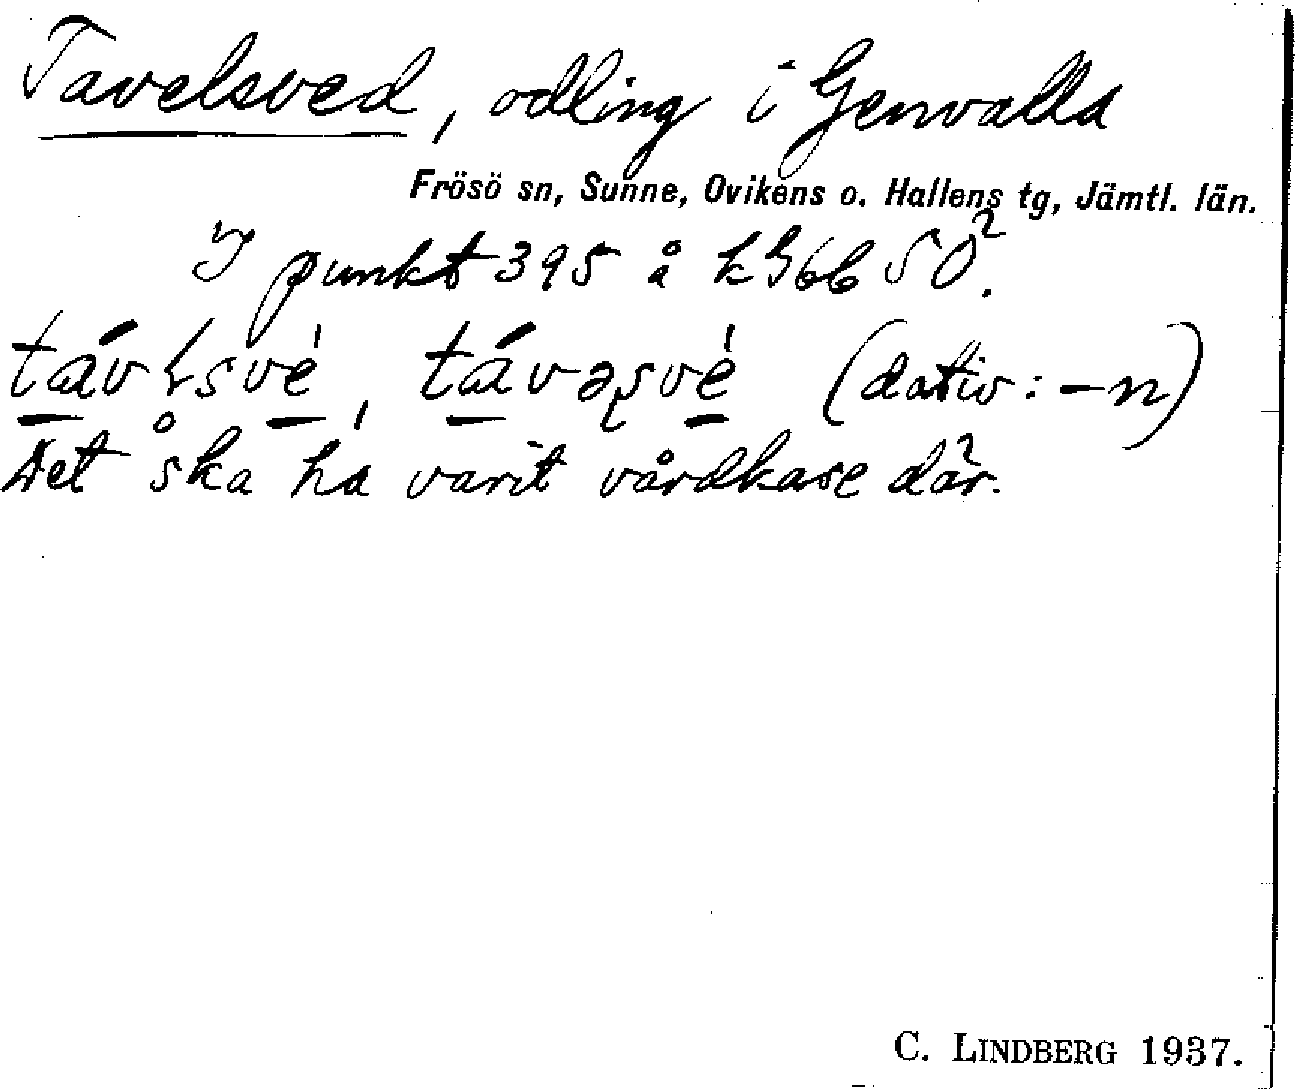 Tavelsved, odling i Genvalla
Frösö sn, Sunne, Ovikens o. Hallens tg, Jämtl. län.
I punkt 395 å kG66 SO².
(dativ: -n)
Det ska ha varit vårdkase där.
C. LINDBERG 1937.